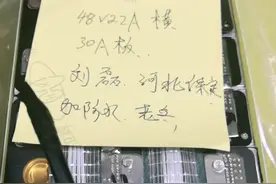 48V22A 横
30A 板
刘磊 河北保定
加防水 老兵,